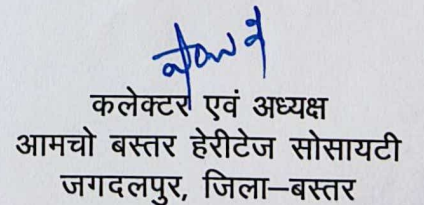 कलेक्टर एवं अध्यक्ष
आमचो बस्तर हेरीटेज सोसायटी
जगदलपुर, जिला–बस्तर